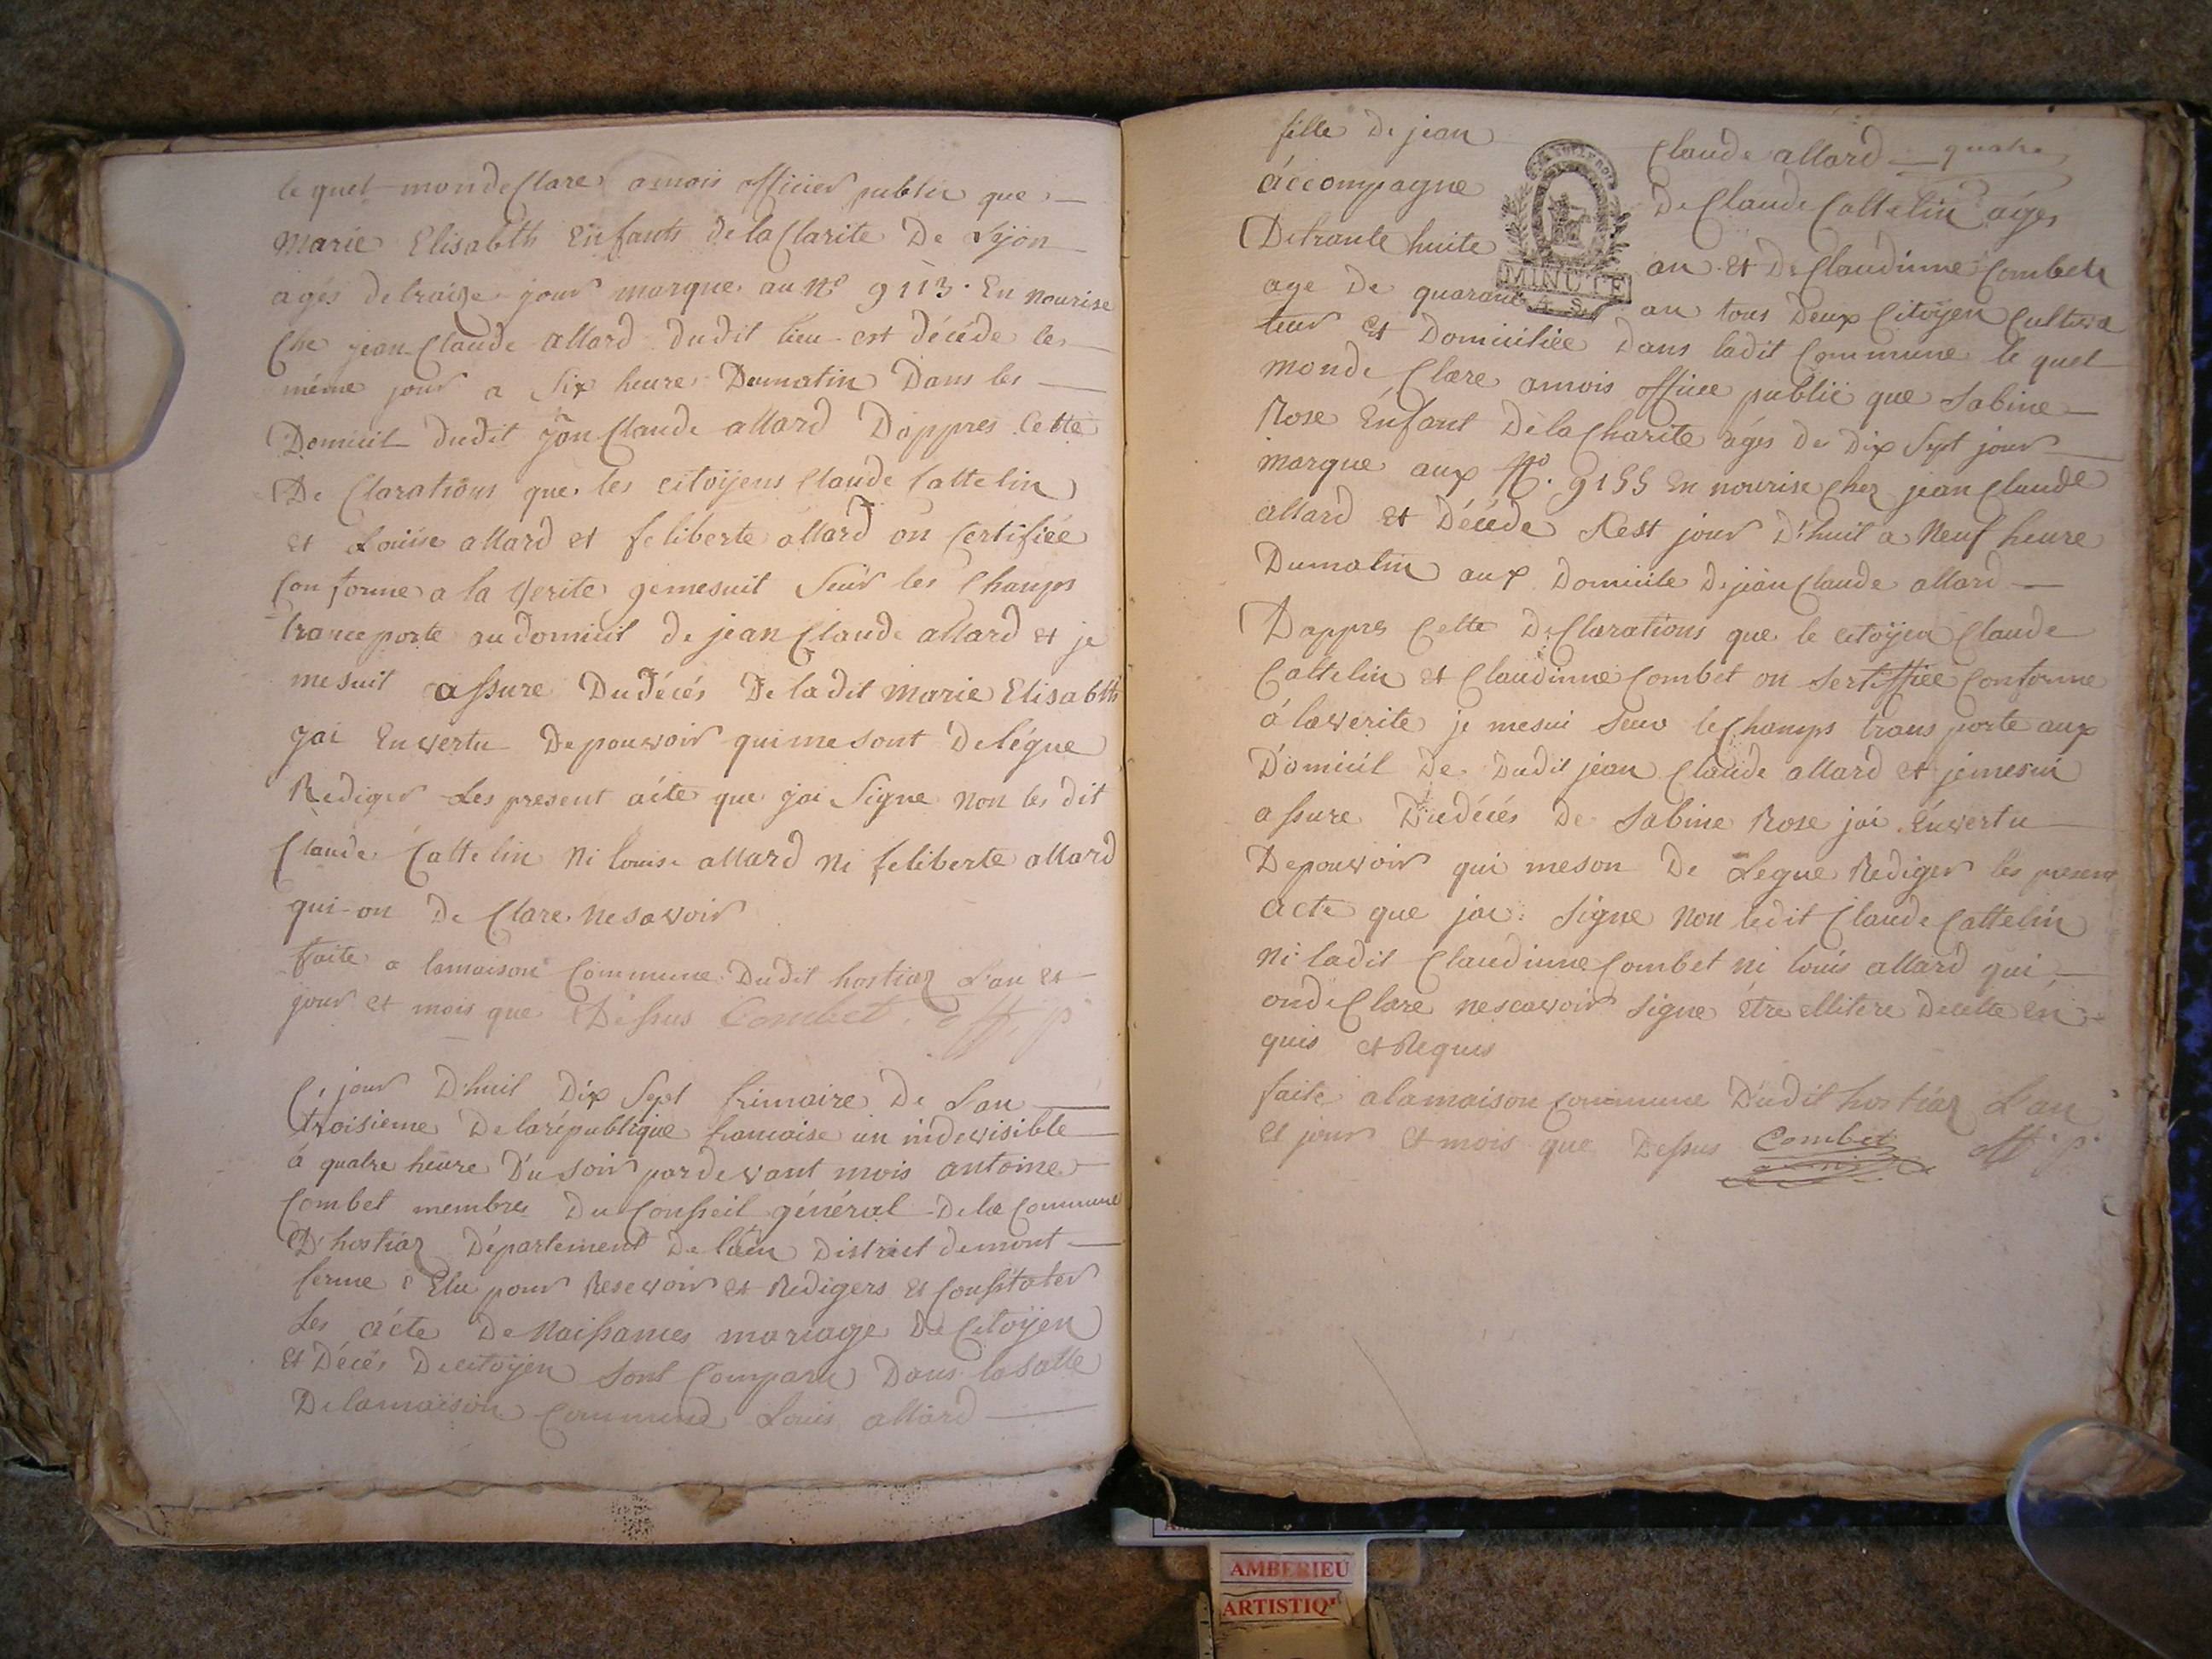 le quel mondeClare amois officier public que
marie Elisabeth Enfants de la Clarite De Lyon
agés de traize jour marque au N° 9113. En nourise
Che jean Claude allard dudit lieu est décéde les
méme jour a six heure Dumatin Dans les
Domicil dudit jean Claude allard Dappres Cette
De Clarations que les citoÿens Claude Cattelin
et Louise allard et feliberte allard on Certifiée
Conforme a la verite jemesuit Seur les Champs
tranceporte au domicil de jean Claude allard et je
mesuit assure Du déces De la dit marie Elisabth
jai En vertu De pouwoir qui me sont Delégue
Rediger Les present aćte que jai Signe Non les dit
Claude Cattelin Ni louise allard Ni feliberte allard
qui on De Clare Ne savoir
faite a lamaison Commune Dudit hostiaz L'an et
jour et mois que Dessus Combet off. p
Ce jour D'huit Dix Sept frimaire De L'an
troisieme De la république francaise un indevisible
á quatre heure Du Soir pardevant mois antoine
Combet membres Du Conseil général De la Commune
D'hostiaz Département De l'ain District demont
ferme Elu pour Resewoir et Redigers et Constater
Les aćte De Naissances mariage De Citoÿen
Et Décés De citoÿen Sont Comparu Dans la Salle
De lamaison Commune Louis allard
fille De jean Claude allard quatre
áccompagne De Claude Cattelin áges
De trante huite an et De Claudinne Combet
MINUTE
age De quarante an tous Deux Citoÿen Cultiva
teur et Domiciliée Dans ladit Commune le quel
monde Clare amois officie public que Sabine
Rose Énfant De la Charite áges de Dix Sept jour
marque aux N°. 9155 En nourise Chez jean Claude
allard et Décéde Cest jour D'huit a Neuf heure
Dumatin aux Domicile De jean Claude allard
Dappres Cette DeClarations que le citoÿen Claude
Cattelin et Claudinne Combet on Sertiffiée Conforme
á laverite je mesui Seur le Champs transporte aux
Domicil De Dudit jean Claude allard et jemesui
assure Du décés De Sabine Rose jai En vertu
De pouvoir qui meson De Legue Rediger les present
acte que jai Signe Non ledit Claude Cattelin
Ni ladit Claudinne Combet ni louis allard qui
ondeClare nescavoir Signe étre ellitere De cette én
quis et Requis
faite a lamaison Commune Dudit hostiaz L'an
et jour et mois que Dessus Combet off. p.
AMBERIEU
ARTISTIQ